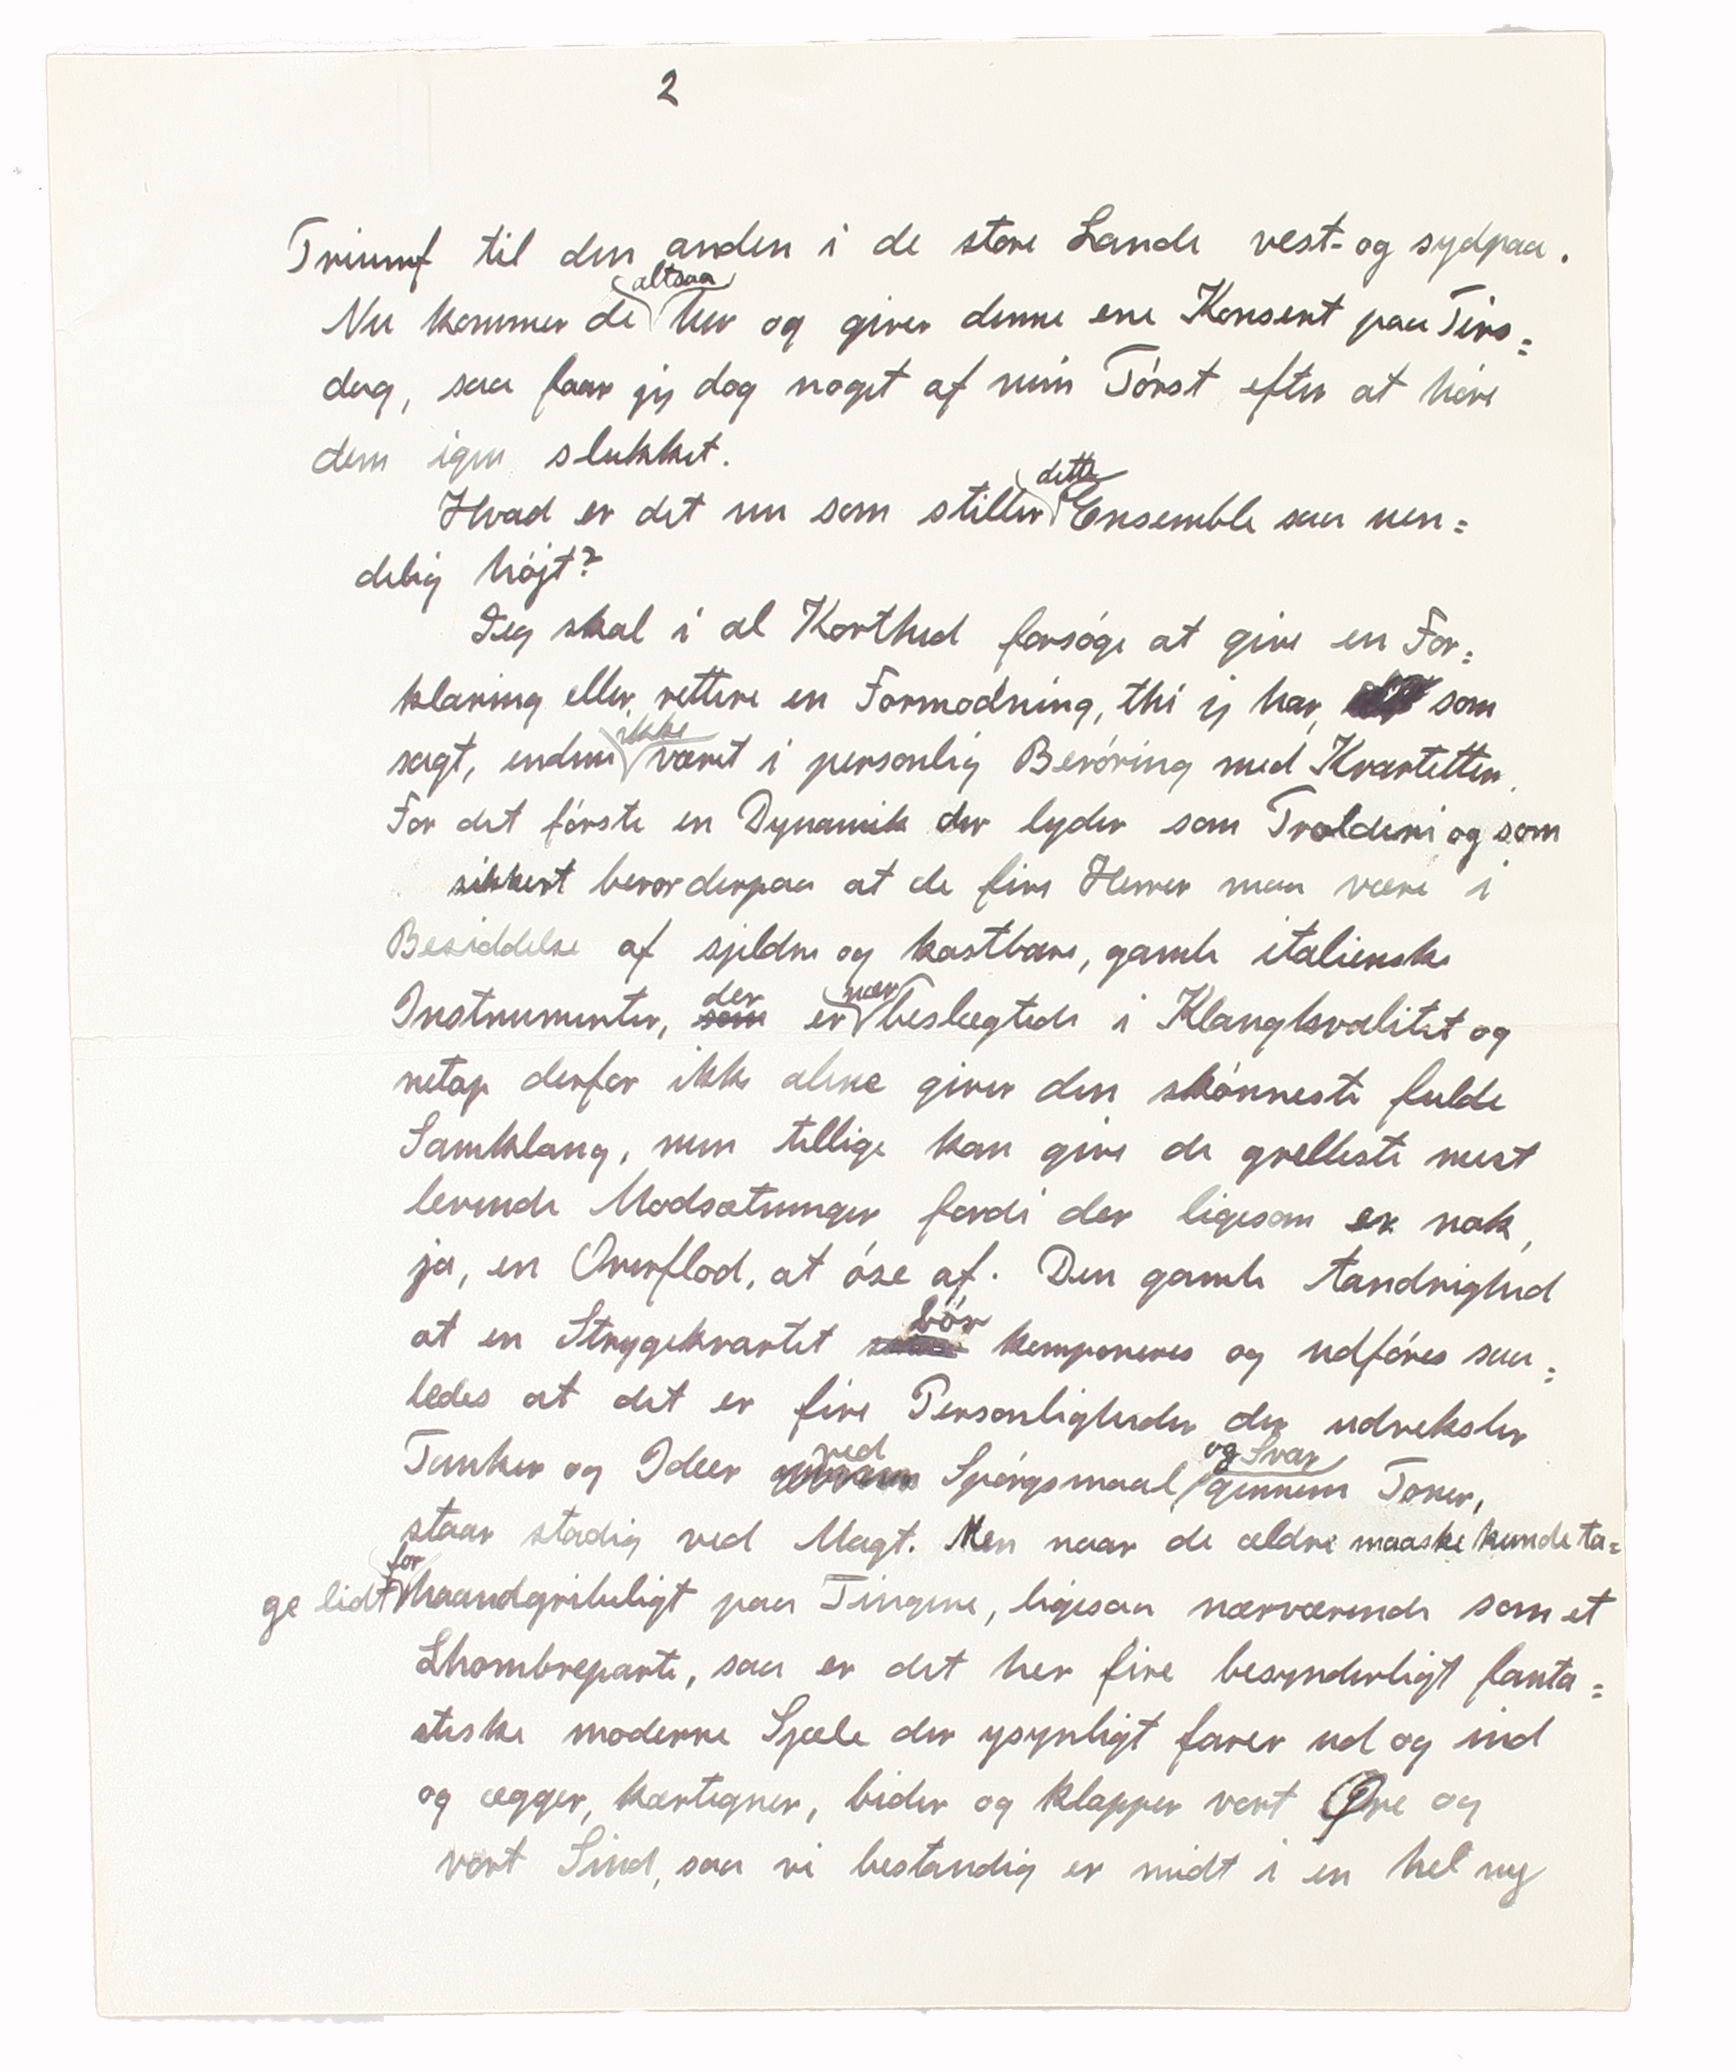 2
Triumf til den anden i de store Lande vest- og sydpaa.
Nu kommer de altsaa her og giver denne ene Konsert paa Tirs=
dag, saa faar jeg dog noget af min Tørst efter at høre
dem igen slukket.
Hvad er det nu som stiller dette Ensemble saa uen=
delig højt?
Jeg skal i al Korthed forsøge at give en For=
klaring eller rettere en Formodning, thi jeg har, som
sagt, endnu ikke været i personlig Berøring med Kvartetten.
For det første en Dynamik der lyder som Trolderi og som
sikkert beror derpaa at de fire Herrer maa være i
Besiddelse af sjeldne og kostbare, gamle italienske
Instrumenter, som der er nær beslægtede i Klangkvalitet og
netop derfor ikke alene giver den skønneste fulde
Samklang, men tillige kan give de grelleste mest
levende Modsætninger fordi der ligesom er nok,
ja, en Overflod, at øse af. Den gamle Aandrighed
at en Strygekvartet bør komponeres og udføres saa=
ledes at det er fire Personligheder der udveksler
Tanker og Ideer ved Spørgsmaal og Svar gennem Toner,
staar stadig ved Magt. Men naar de ældre maaske kunde ta=
ge lidt for haandgribeligt paa Tingene, ligesaa nærværende som et
Lhombreparti, saa er det her fire besynderligt fanta=
stiske moderne Sjæle der usynligt farer ud og ind
og ægger, kærtegner, bider og klapper vort Øre og
vort Sind, saa vi bestandig er midt i en hel ny